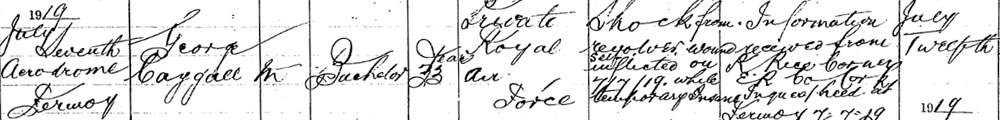 1919
July
Seventh
Aerodrome
Fermoy
George
Caygill
M
Bachelor
Years
Private
Royal
Air
Force
Shock from
revolver wound
self
inflicted on
7/7/19. while
temporary Insane
Information
received from
R Rice Coroner
Co Cork
Inquest held at
Fermoy 7-7-19
July
Twelfth
1919